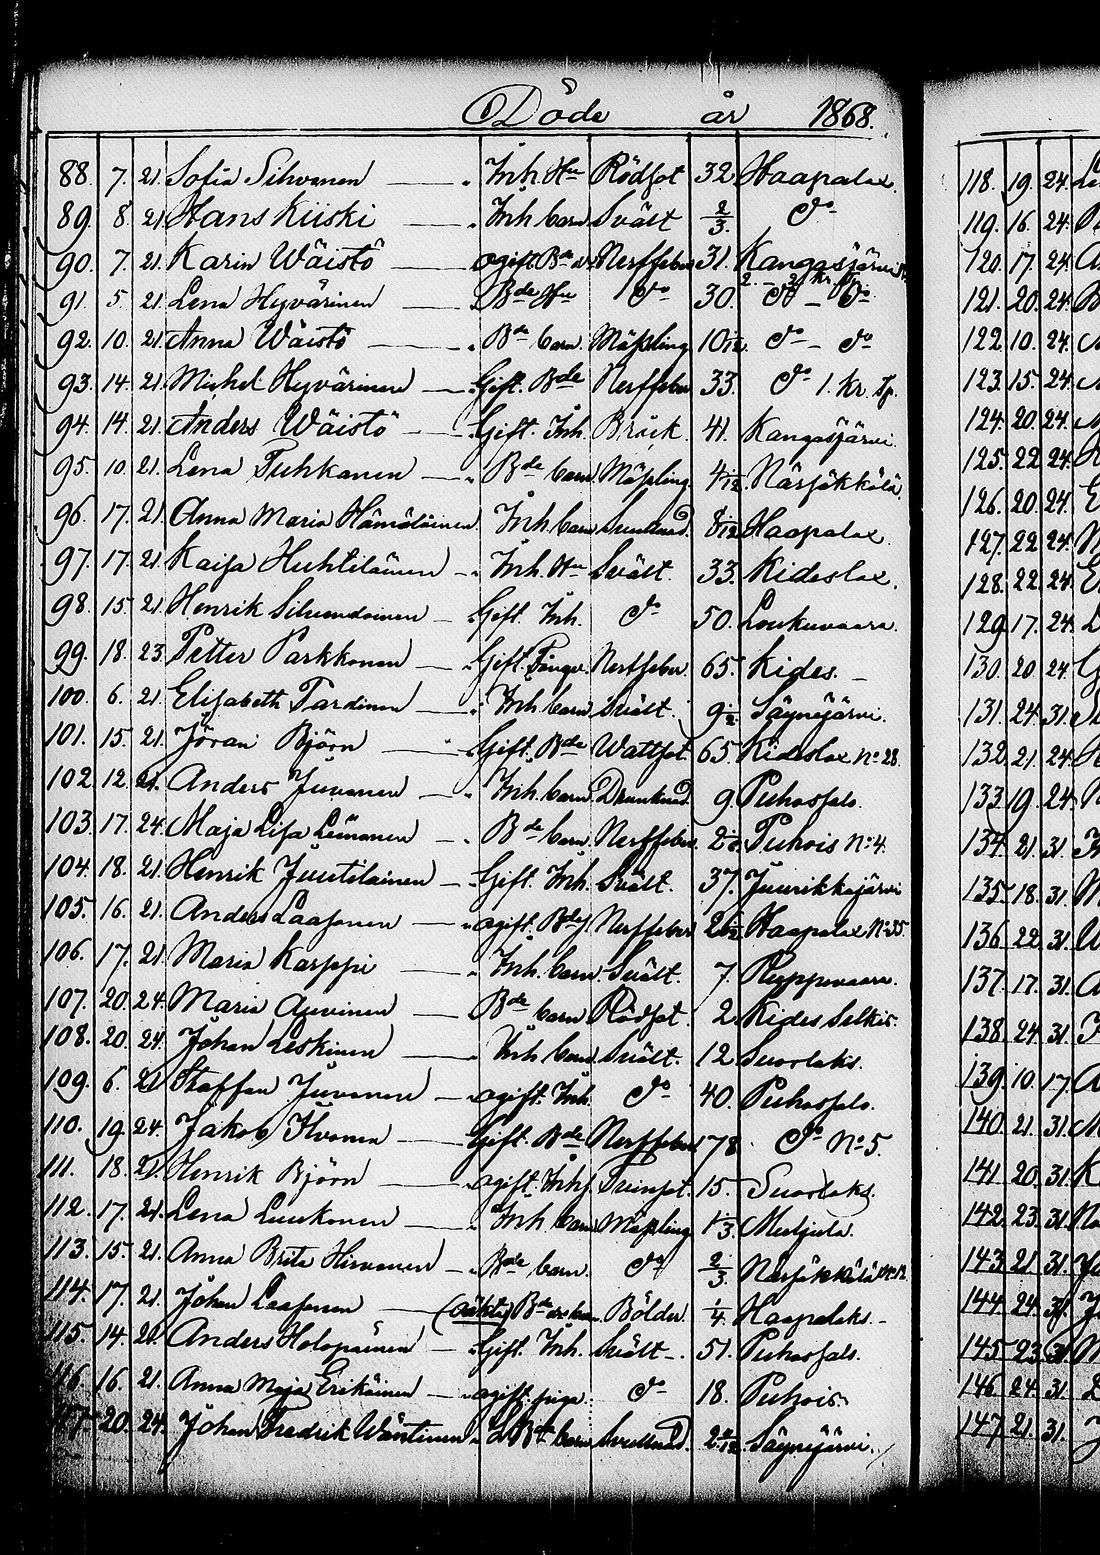 Döde år 1868.
88. 7. 21. Sofia Silvonen Inh. Hu Rödsot 32. Haapalax.
89. 8. 21. Hans Kiiski Inh. barn Svält 2/3. do
90. 7. 21. Karin Wäistö ogift Bde Nerffeber 31. Kangasjärvi
91. 5. 21. Lena Hyvärinen Bde Hu do 30. do – do
92. 10. 21. Anna Wäistö Bde barn Mässling 10/12. do – do
93. 14. 21. Michel Hyvärinen Gift. Bde Nerffeber 33. do 1. Kr.
94. 14. 21. Anders Wäistö Gift. Inh. Bråck. 41. Kangasjärvi.
95. 10. 21. Lena Tuhkanen Bde barn Mässling 4/12. Närsäkkälä
96. 17. 21. Anna Maria Hämäläinen Inh. barn 8/12 Haapalax
97. 17. 21. Kaisa Huhtiläinen Inh. Hu Svält. 33. Kideslax.
98. 15. 21. Henrik Gift. Inh. do 50. Loukuvaara.
99. 18. 23. Petter Parkkonen Gift. Fånge Nerffeber 65. Kides. –
100. 6. 21. Elisabeth Tardinen Inh. barn Svält. 9 1/2 Säynejärvi.
101. 15. 21. Jöran Björn Gift. Bde Wattsot. 65. Kideslax No 28.
102. 12. 21. Anders Juvonen Inh. barn Drunknad. 9. Puhosfals.
103. 17. 24. Maja Lisa Leinonen Bde barn Nerffeber Puhois No 4.
104. 18. 21. Henrik Juutilainen Gift. Inh. Svält. 37. Juurikkajärvi
105. 16. 21. Anders Laasonen ogift. Nerffeber Haapalax No 35
106. 17. 21. Maria Karppi Inh. barn Svält. 7. Ruppovaara.
107. 20. 24. Maria Bde barn Rödsot. 2. Kides Selkis.
108. 20. 24. Johan Leskinen Inh. barn Svält. 12. Suorlaks.
109. 6. 21. Staffan Juvonen ogift. Inh. do 40. Puhosfals.
110. 19. 24. Jakob Gift. Bde Nerffeber 78. do No 5.
111. 18. 21. Henrik Björn ogift. Inh. Tvinsot. 15. Suorlaks.
112. 17. 21. Lena Luukonen Inh. barn Mässling 1/3. Mutjula.
113. 15. 21. Anna Brita Hirvonen Bde barn. do 2/3. Närsäkkälä No 12.
114. 17. 21. Johan Laasonen (oäkta) Bde Bölder. 1/4. Haapalaks. –
115. 14. 21. Anders Holopainen Gift. Inh. Svält –. 51. Puhosfals.
116. 16. 21. Anna Maja Erikäinen ogift piga. do 18. Puhois.
117. 20. 24. Johan Fredrik Bde barn Säynejärvi.
118. 19. 24.
119. 16. 24.
120. 17. 24.
121. 20. 24.
122. 10. 24.
123. 15. 24.
124. 20. 24.
125. 22. 24.
126. 20. 24.
127. 22. 24.
128. 22. 24.
129. 17. 24.
130. 20. 24.
131. 24. 31.
132. 21. 24.
133. 19. 24.
134. 21. 31.
135. 18. 31.
136. 22. 31.
137. 17. 31.
138. 24. 31.
139. 10. 17.
140. 21. 31.
141. 20. 31.
142. 23. 31.
143. 21. 31.
144. 24. 31.
145. 23. 31.
146. 24. 31.
147. 21. 31.